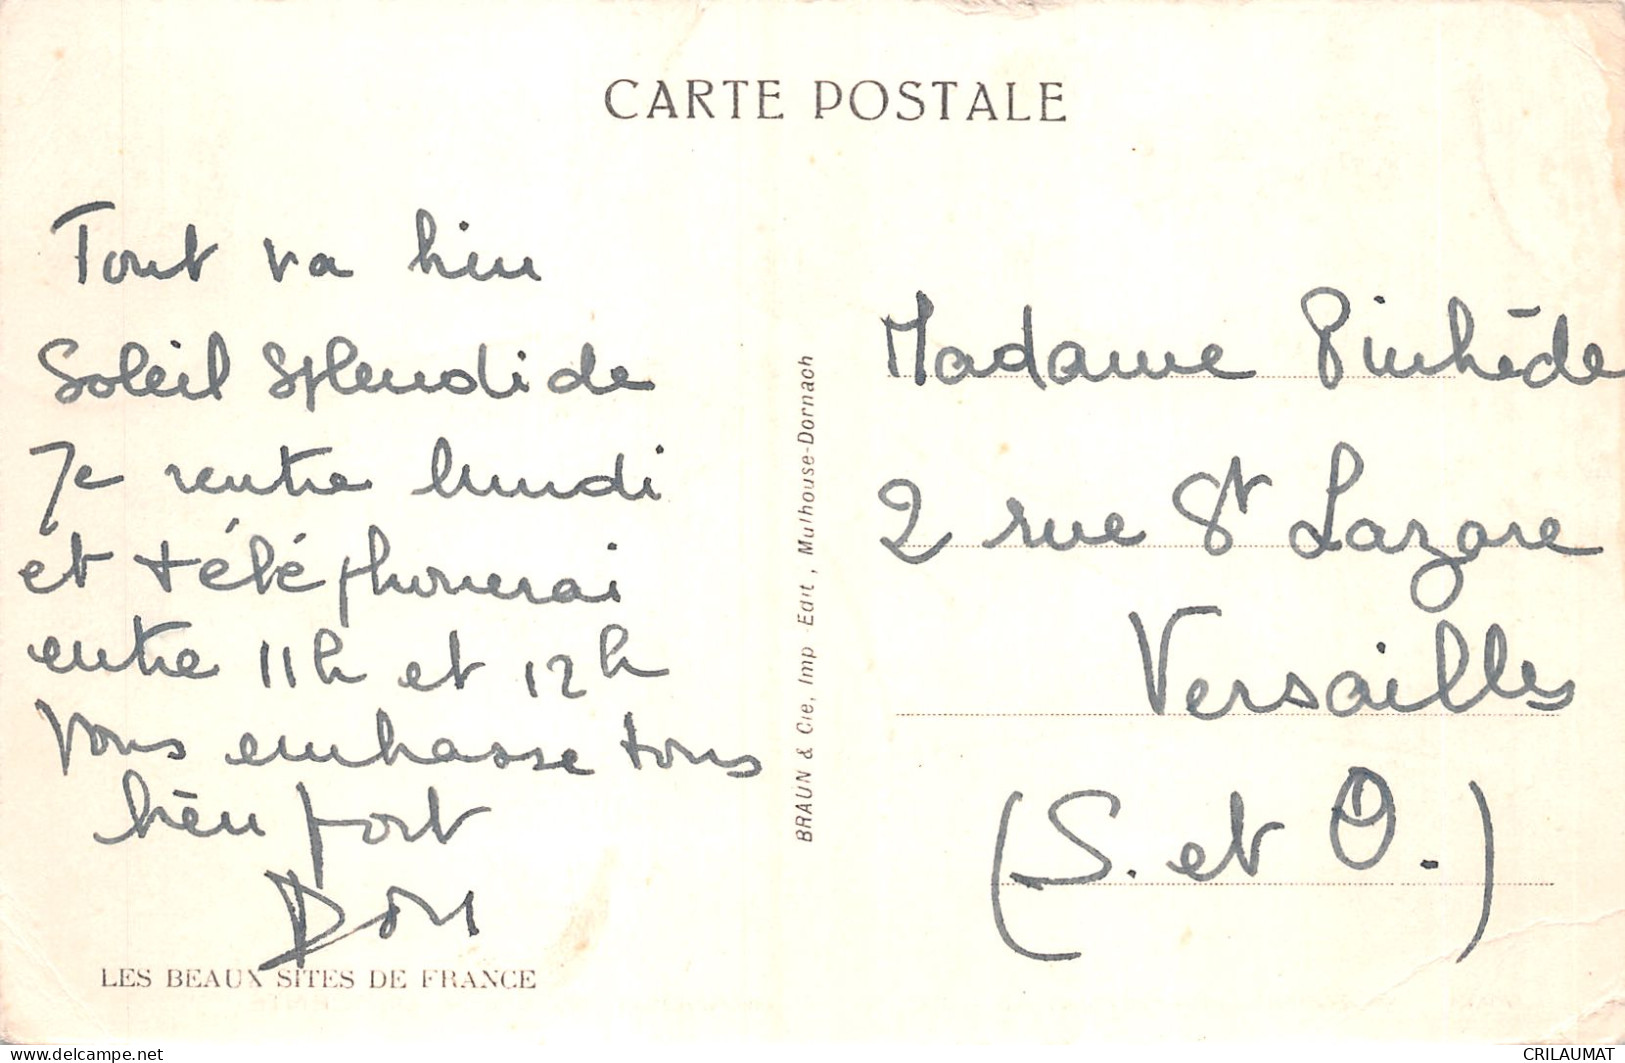 CARTE POSTALE
Tout va bien
Soleil splendide
Je rentre lundi
et téléphonerai
entre 11h et 12h
Vous embrasse tous
bien fort
LES BEAUX SITES DE FRANCE
BRAUN & Cie, Imp. Edit., Mulhouse-Dornach
Madame
2 rue St Lazare
Versailles
(S. et O.)
delcampe.net
CRILAUMAT